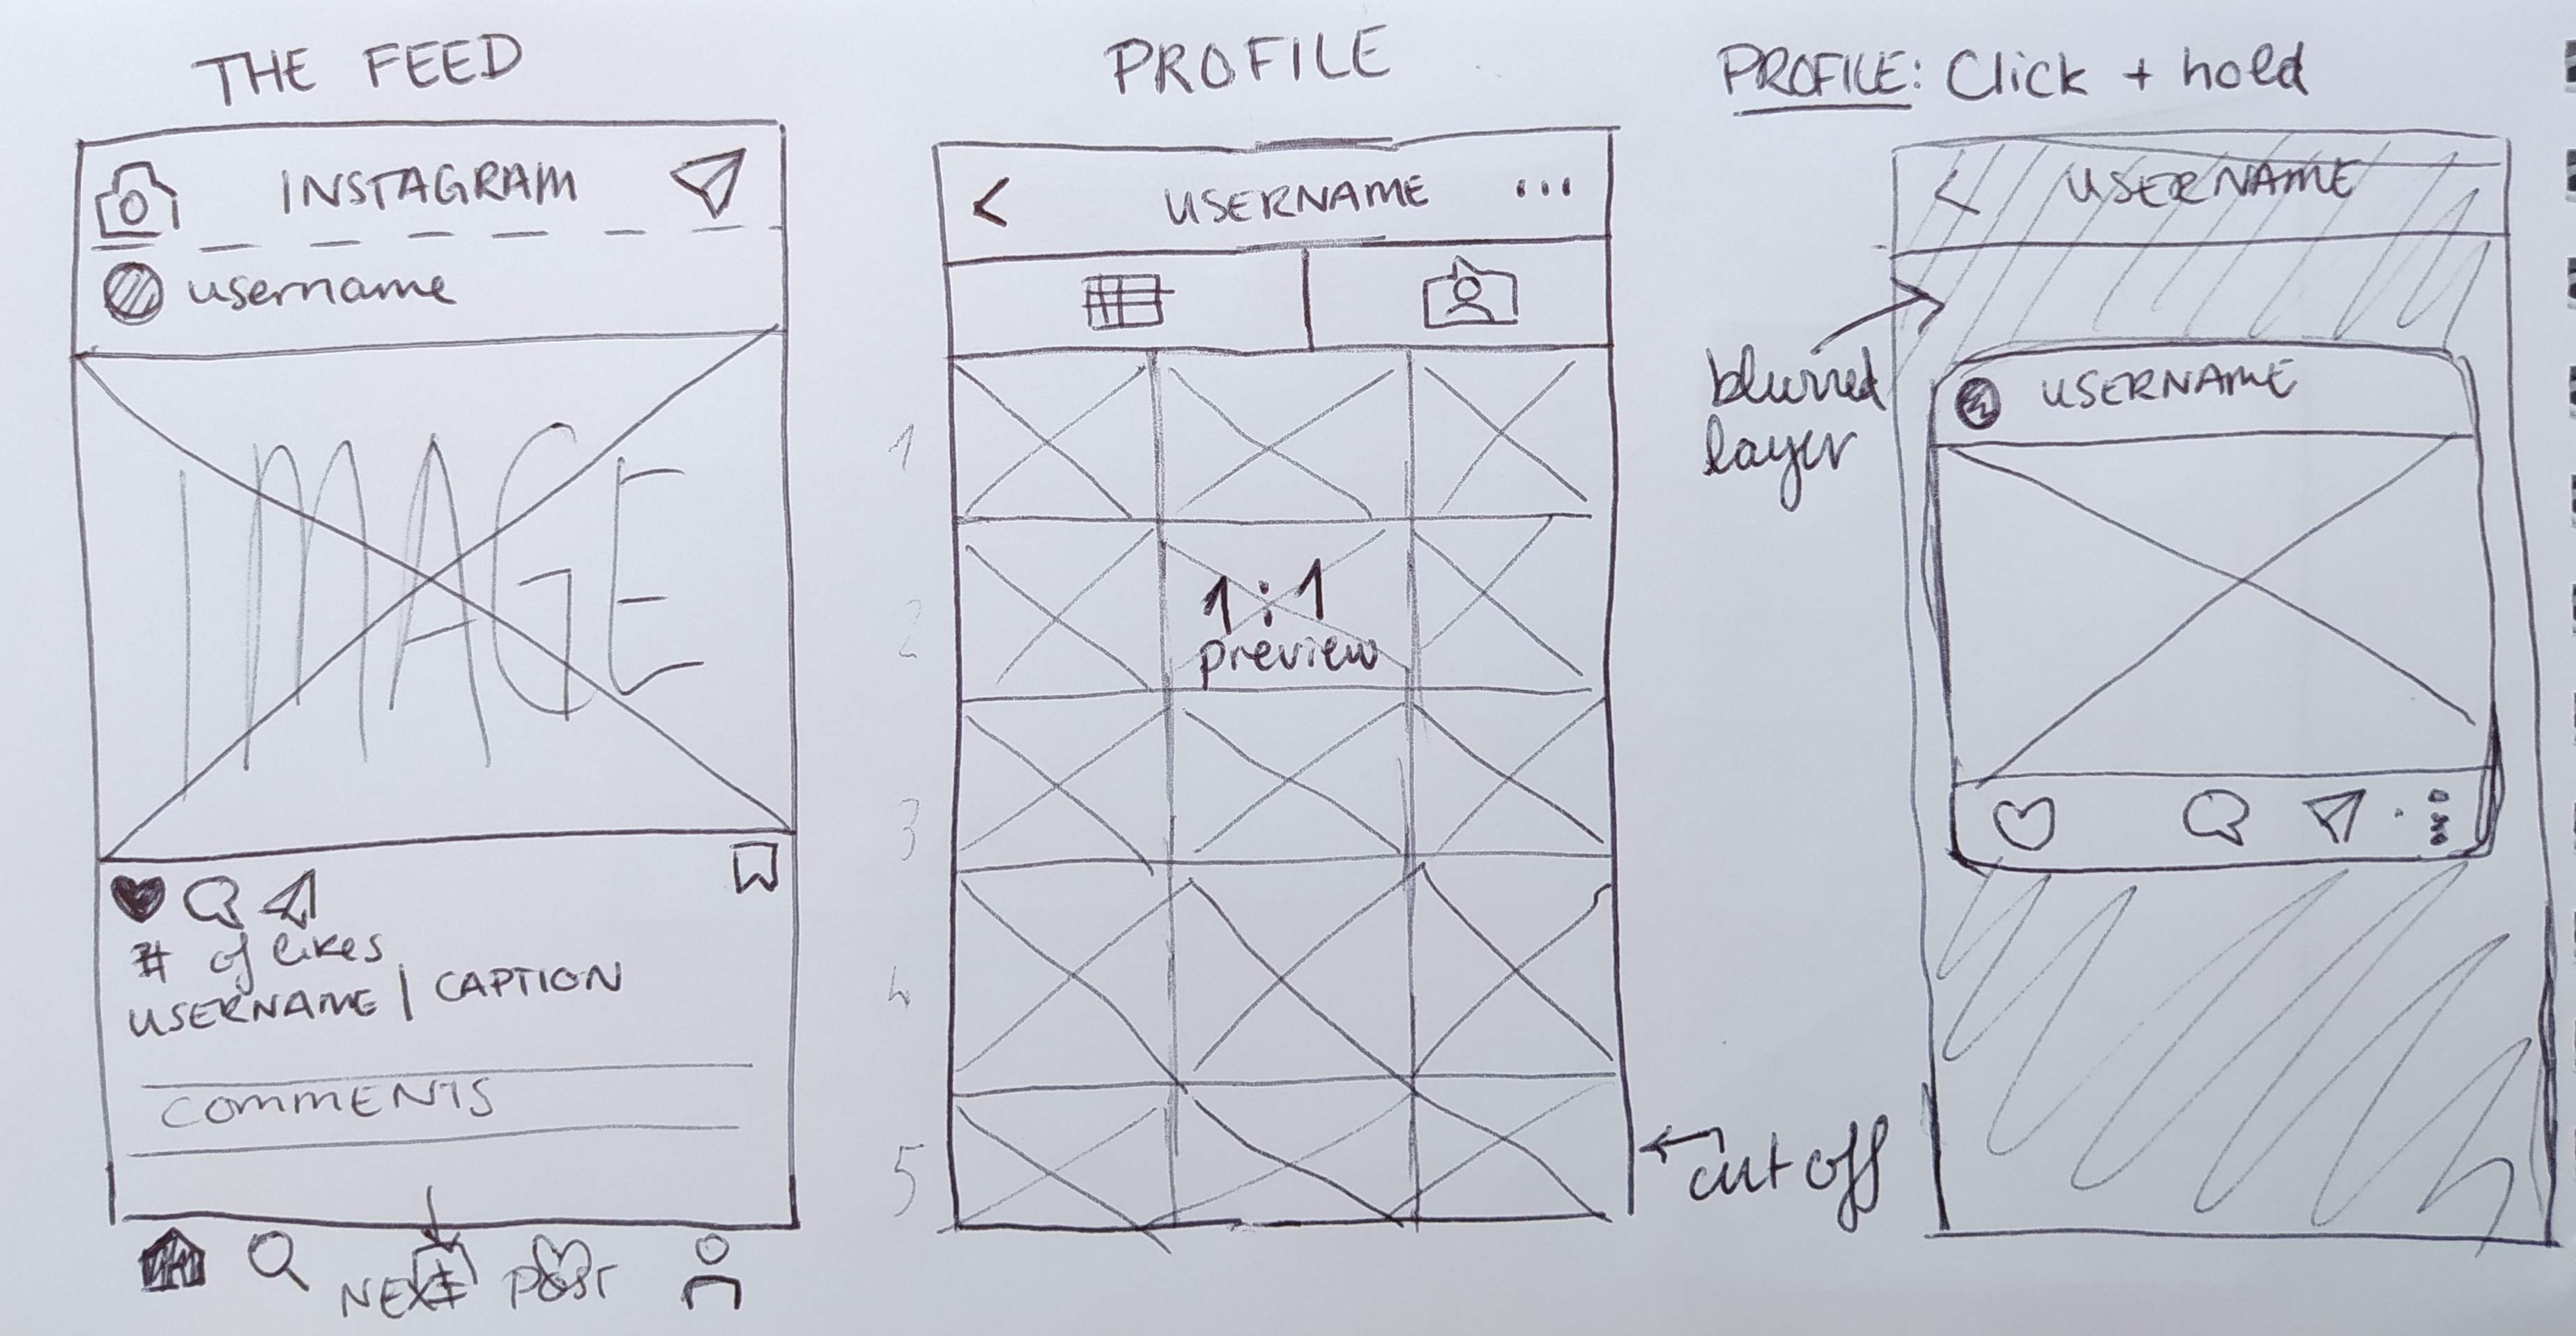 THE FEED
INSTAGRAM
username
IMAGE
# of likes
USERNAME | CAPTION
COMMENTS
NEXT POST
PROFILE
< USERNAME ...
1
2
3
4
5
1:1
preview
cut off
PROFILE: Click + hold
< USERNAME
blurred
layer
USERNAME